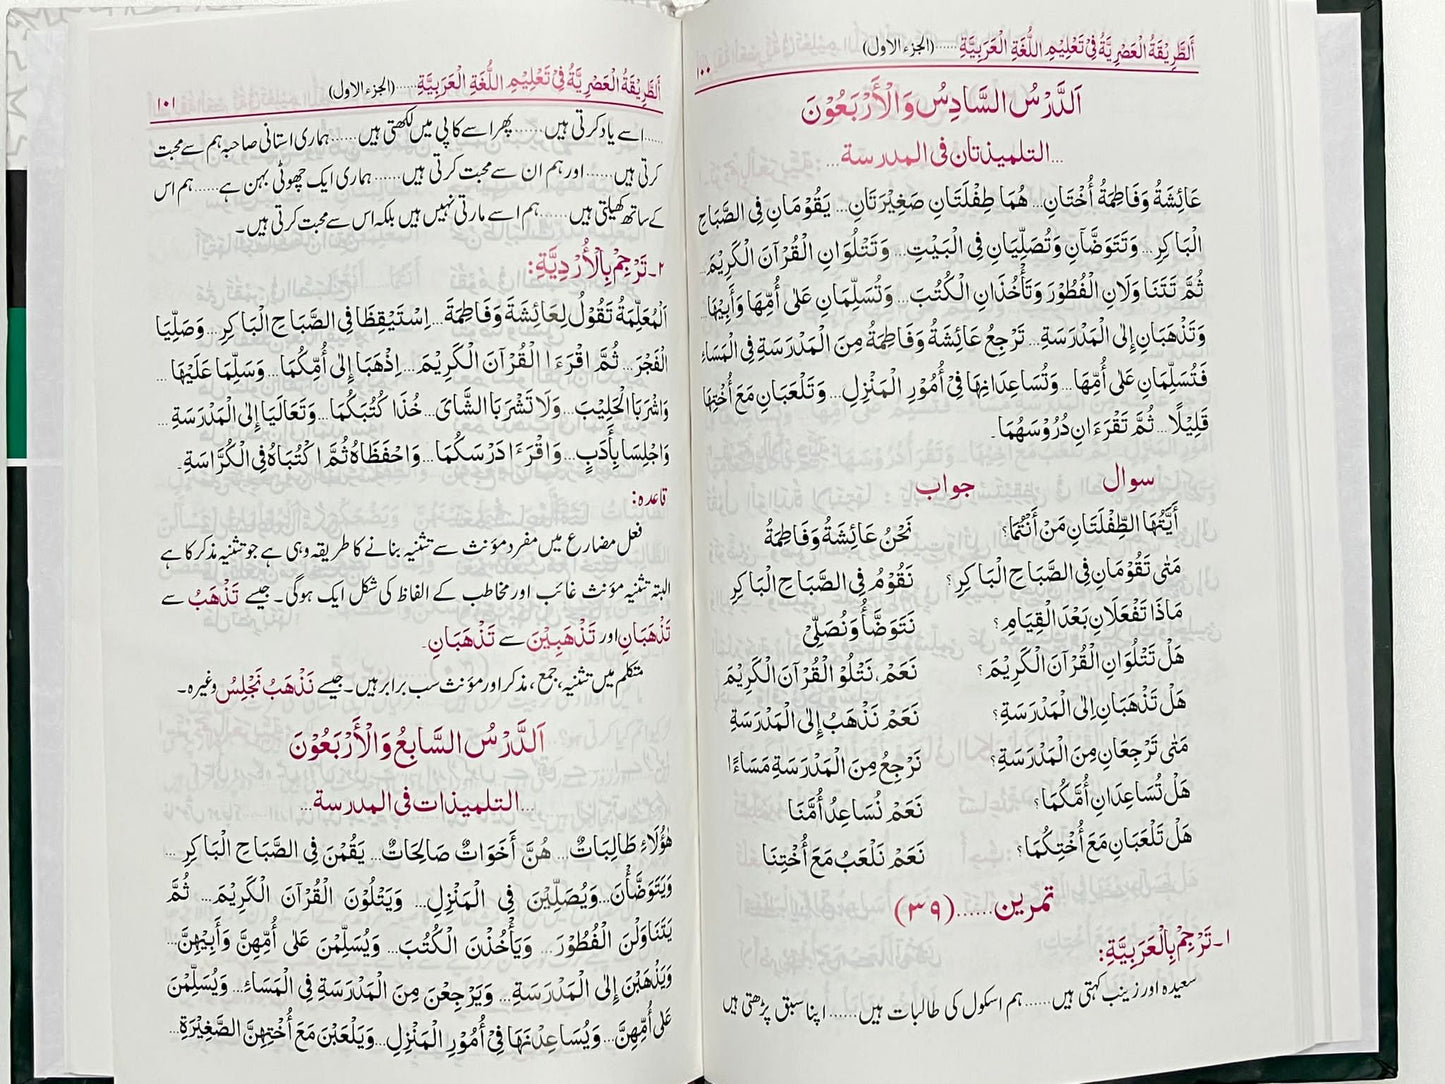 اَلطَّرِيْقَةُ الْعَصْرِيَّةُ فِيْ تَعْلِيْمِ اللُّغَةِ الْعَرَبِيَّةِ......(الجزء الاول) ١٠٠
اَلدَّرْسُ السَّادِسُ وَالْأَرْبَعُوْنَ
...التلميذتان فی المدرسة...
عَائِشَةُ وَفَاطِمَةُ أُخْتَانِ... هُمَا طِفْلَتَانِ صَغِيْرَتَانِ... يَقُوْمَانِ فِی الصَّبَاحِ
الْبَاكِرِ... وَتَتَوَضَّآنِ وَتُصَلِّيَانِ فِی الْبَيْتِ... وَتَتْلُوَانِ الْقُرْآنَ الْكَرِيْمَ...
ثُمَّ تَتَنَاوَلَانِ الْفُطُوْرَ وَتَأْخُذَانِ الْكُتُبَ... وَتُسَلِّمَانِ عَلٰى أُمِّهَا وَأَبِيْهَا
وَتَذْهَبَانِ إِلَى الْمَدْرَسَةِ... تَرْجِعُ عَائِشَةُ وَفَاطِمَةُ مِنَ الْمَدْرَسَةِ فِی الْمَسَاءِ
فَتُسَلِّمَانِ عَلٰى أُمِّهَا... وَتُسَاعِدَانِهَا فِيْ أُمُوْرِ الْمَنْزِلِ... وَتَلْعَبَانِ مَعَ أُخْتِهَا
قَلِيْلًا... ثُمَّ تَقْرَءَانِ دُرُوْسَهُمَا۔
سوال جواب
أَيَّتُهَا الطِّفْلَتَانِ مَنْ أَنْتُمَا؟ نَحْنُ عَائِشَةُ وَفَاطِمَةُ
مَتٰى تَقُوْمَانِ فِی الصَّبَاحِ الْبَاكِرِ؟ نَقُوْمُ فِی الصَّبَاحِ الْبَاكِرِ
مَاذَا تَفْعَلَانِ بَعْدَ الْقِيَامِ؟ نَتَوَضَّأُ وَنُصَلِّيْ
هَلْ تَتْلُوَانِ الْقُرْآنَ الْكَرِيْمَ؟ نَعَمْ، نَتْلُوْ الْقُرْآنَ الْكَرِيْمَ
هَلْ تَذْهَبَانِ إِلَى الْمَدْرَسَةِ؟ نَعَمْ نَذْهَبُ إِلَى الْمَدْرَسَةِ
مَتٰى تَرْجِعَانِ مِنَ الْمَدْرَسَةِ؟ نَرْجِعُ مِنَ الْمَدْرَسَةِ مَسَاءً
هَلْ تُسَاعِدَانِ أُمَّكُمَا؟ نَعَمْ نُسَاعِدُ أُمَّنَا
هَلْ تَلْعَبَانِ مَعَ أُخْتِكُمَا؟ نَعَمْ نَلْعَبُ مَعَ أُخْتِنَا
تمرین......(۳۹)
١۔تَرْجِمْ بِالْعَرَبِيَّةِ:
سعیدہ اور زینب کہتی ہیں......ہم اسکول کی طالبات ہیں......اپنا سبق پڑھتی ہیں
اَلطَّرِيْقَةُ الْعَصْرِيَّةُ فِيْ تَعْلِيْمِ اللُّغَةِ الْعَرَبِيَّةِ......(الجزء الاول) ١٠١
......اسے یاد کرتی ہیں......پھر اسے کاپی میں لکھتی ہیں......ہماری استانی صاحبہ ہم سے محبت
کرتی ہیں......اور ہم ان سے محبت کرتی ہیں......ہماری ایک چھوٹی بہن ہے......ہم اس
کے ساتھ کھیلتی ہیں......ہم اسے مارتی نہیں ہیں بلکہ اس سے محبت کرتی ہیں۔
٢۔تَرْجِمْ بِالْأُرْدِيَّةِ:
اَلْمُعَلِّمَةُ تَقُوْلُ لِعَائِشَةَ وَفَاطِمَةَ... اِسْتَيْقِظَا فِی الصَّبَاحِ الْبَاكِرِ... وَصَلِّيَا
الْفَجْرَ... ثُمَّ اقْرَءَا الْقُرْآنَ الْكَرِيْمَ... اِذْهَبَا إِلٰى أُمِّكُمَا... وَسَلِّمَا عَلَيْهَا...
وَاشْرَبَا الْحَلِيْبَ... وَلَا تَشْرَبَا الشَّایَ... خُذَا كُتُبَكُمَا... وَتَعَالَيَا إِلَى الْمَدْرَسَةِ...
وَاجْلِسَا بِأَدَبٍ... وَاقْرَءَا دَرْسَكُمَا... وَاحْفَظَاهُ ثُمَّ اكْتُبَاهُ فِی الْكُرَّاسَةِ۔
قاعدہ:
فعل مضارع میں مفرد مؤنث سے تثنیہ بنانے کا طریقہ وہی ہے جو تثنیہ مذکر کا ہے
البتہ تثنیہ مؤنث غائب اور مخاطب کے الفاظ کی شکل ایک ہوگی۔ جیسے تَذْهَبُ سے
تَذْهَبَانِ اور تَذْهَبِيْنَ سے تَذْهَبَانِ۔
متکلم میں تثنیہ، جمع، مذکر اور مؤنث سب برابر ہیں۔ جیسے نَذْهَبُ نَجْلِسُ وغیرہ۔
اَلدَّرْسُ السَّابِعُ وَالْأَرْبَعُوْنَ
...التلميذات فی المدرسة...
هٰؤُلَاءِ طَالِبَاتٌ... هُنَّ أَخَوَاتٌ صَالِحَاتٌ... يَقُمْنَ فِی الصَّبَاحِ الْبَاكِرِ...
وَيَتَوَضَّأْنَ... وَيُصَلِّيْنَ فِی الْمَنْزِلِ... وَيَتْلُوْنَ الْقُرْآنَ الْكَرِيْمَ... ثُمَّ
يَتَنَاوَلْنَ الْفُطُوْرَ... وَيَأْخُذْنَ الْكُتُبَ... وَيُسَلِّمْنَ عَلٰى أُمِّهِنَّ وَأَبِيْهِنَّ...
وَيَذْهَبْنَ إِلَى الْمَدْرَسَةِ... وَيَرْجِعْنَ مِنَ الْمَدْرَسَةِ فِی الْمَسَاءِ... وَيُسَلِّمْنَ
عَلٰى أُمِّهِنَّ... وَيُسَاعِدْنَهَا فِيْ أُمُوْرِ الْمَنْزِلِ... وَيَلْعَبْنَ مَعَ أُخْتِهِنَّ الصَّغِيْرَةِ...